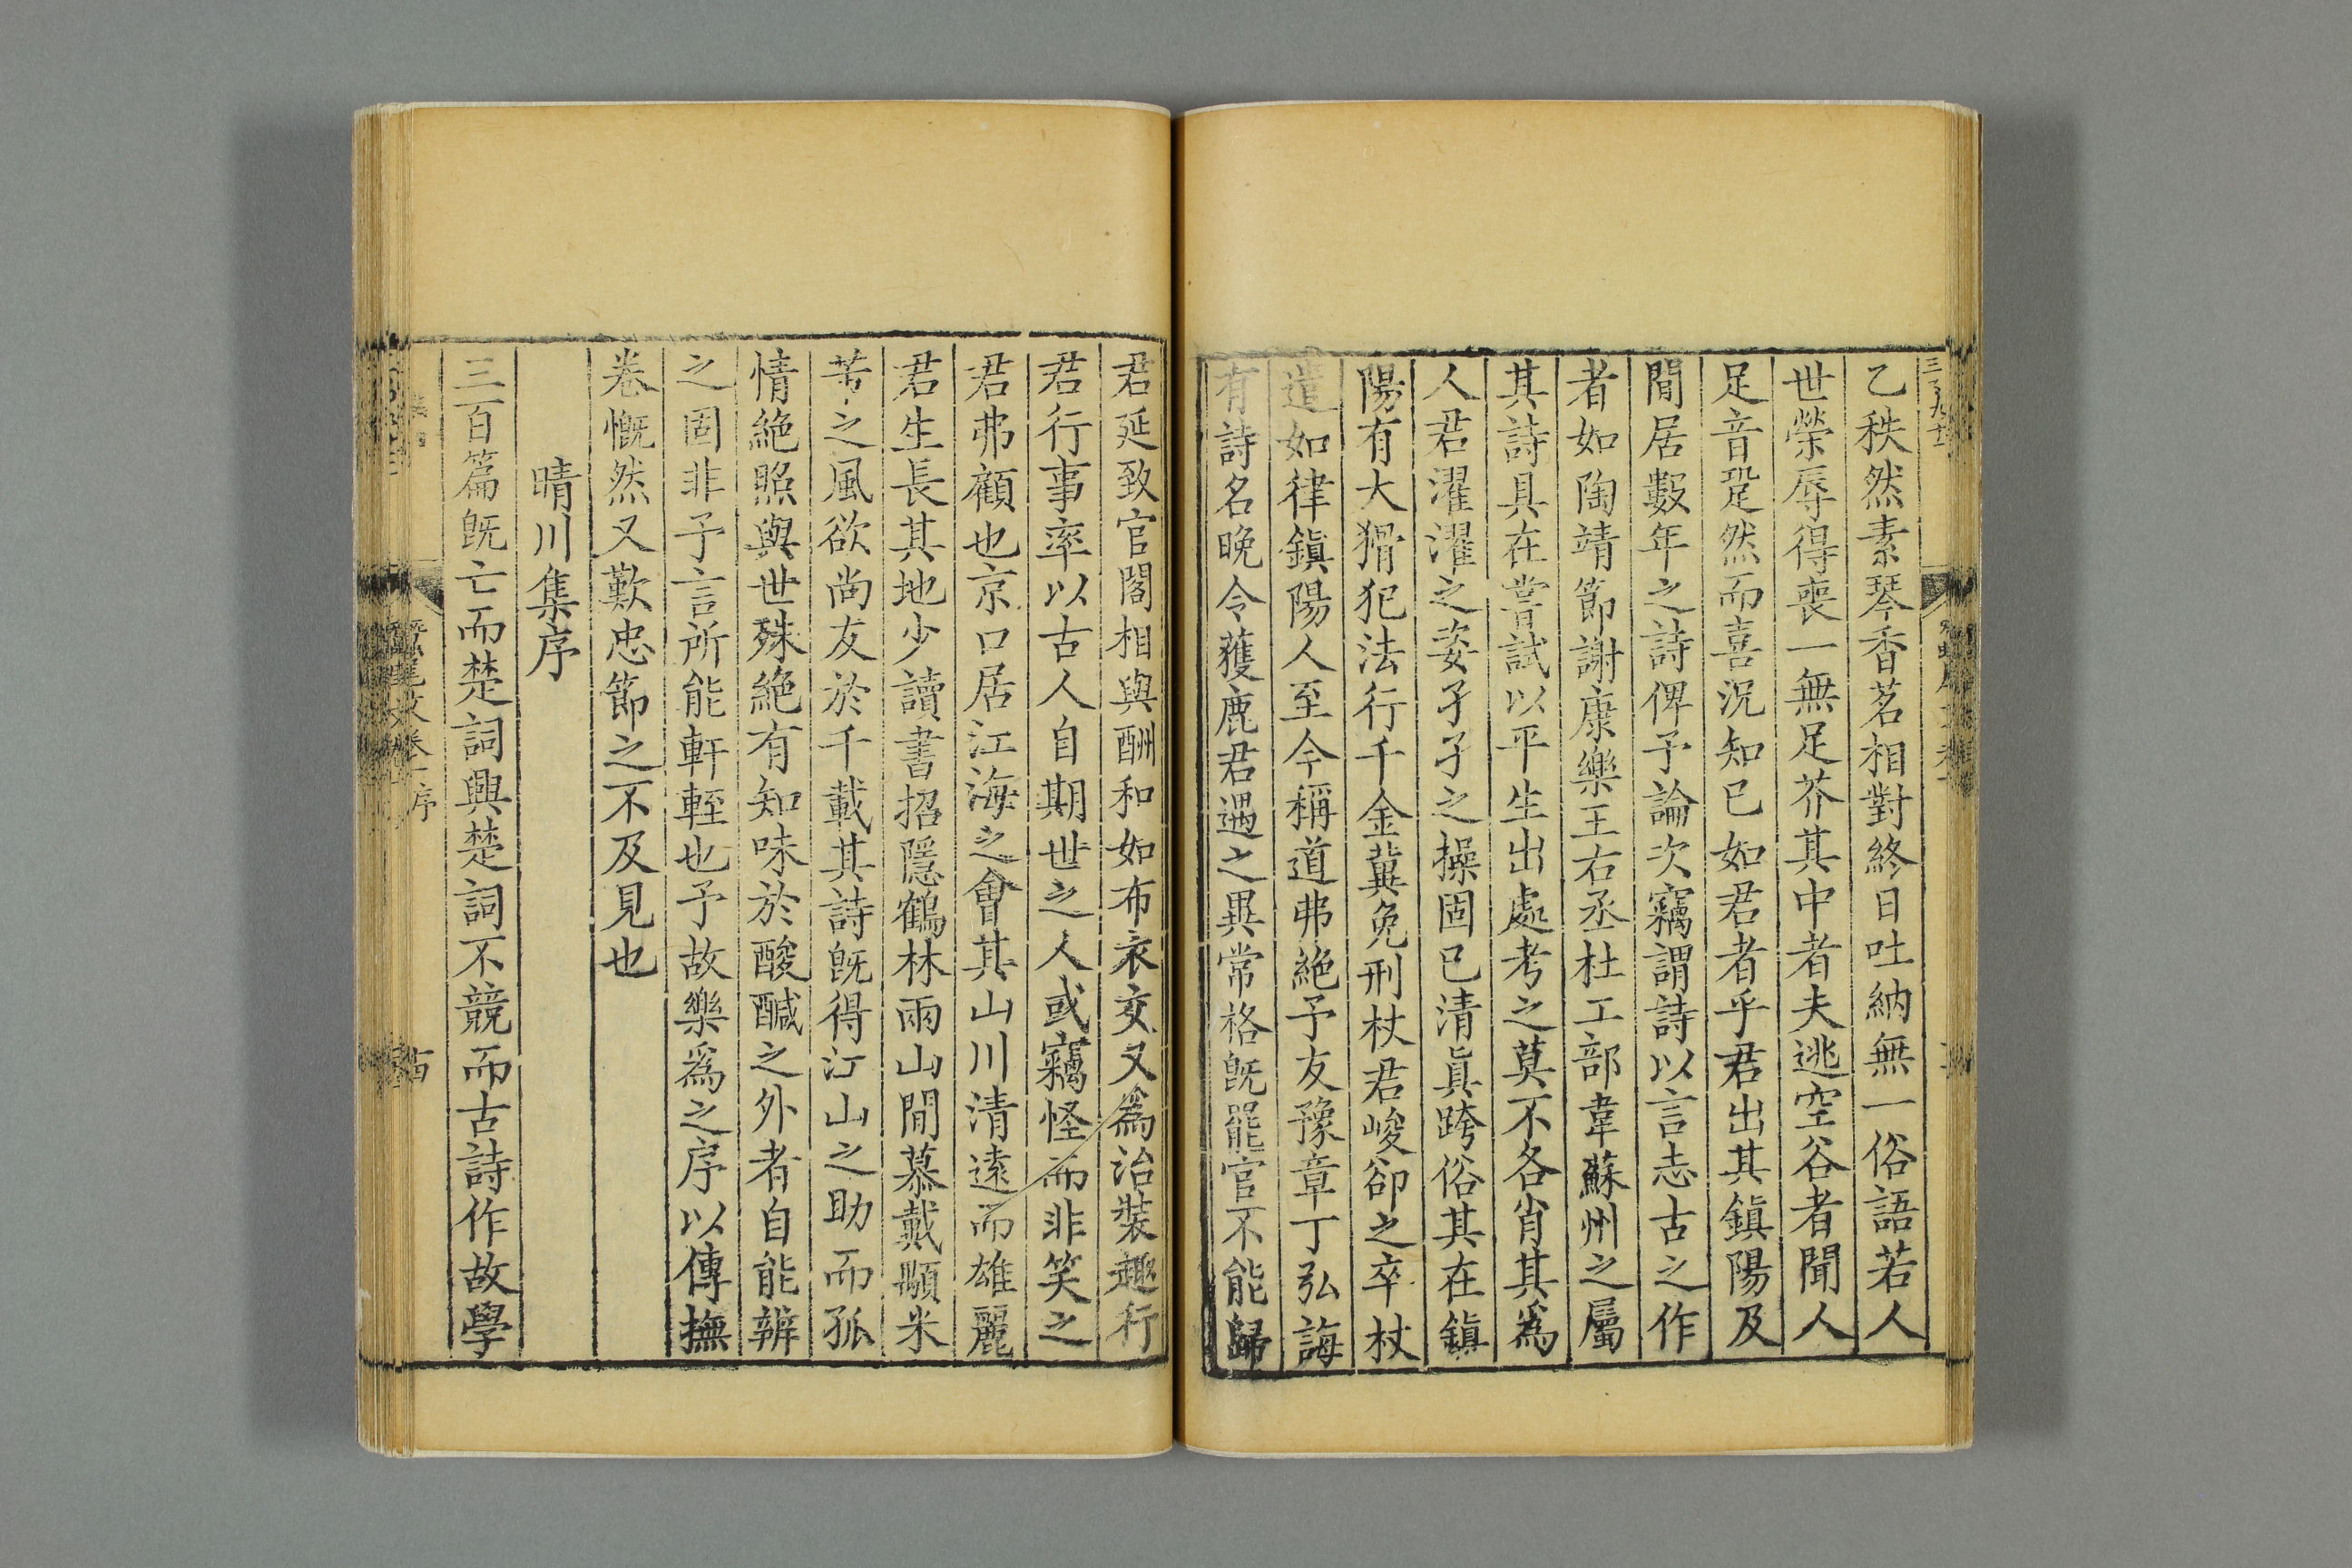 乙秩然素琴香茗相對終日吐納無一俗語若人
世榮辱得喪一無足芥其中者夫逃空谷者聞人
足音跫然而喜況知已如君者乎君出其鎮陽及
閒居數年之詩俾予論次竊謂詩以言志古之作
者如陶靖節謝康樂王右丞杜工部韋蘇州之屬
其詩具在嘗試以平生出處考之莫不各肖其爲
人君濯濯之姿孑孑之操固已清眞跨俗其在鎮
陽有大猾犯法行千金冀免刑杖君峻卻之卒杖
遣如律鎮陽人至今稱道弗絕予友豫章丁弘誨
有詩名晚令獲鹿君遇之異常格旣罷官不能歸
君延致官閣相與酬和如布衣交又爲治裝趣行
君行事率以古人自期世之人或竊怪而非笑之
君弗顧也京口居江海之會其山川清遠而雄麗
君生長其地少讀書招隱鶴林兩山閒慕戴顒米
芾之風欲尚友於千載其詩旣得江山之助而孤
情絕照與世殊絕有知味於酸醎之外者自能辨
之固非予言所能軒輊也予故樂爲之序以傳撫
卷慨然又歎忠節之不及見也
晴川集序
三百篇旣亡而楚詞興楚詞不競而古詩作故學